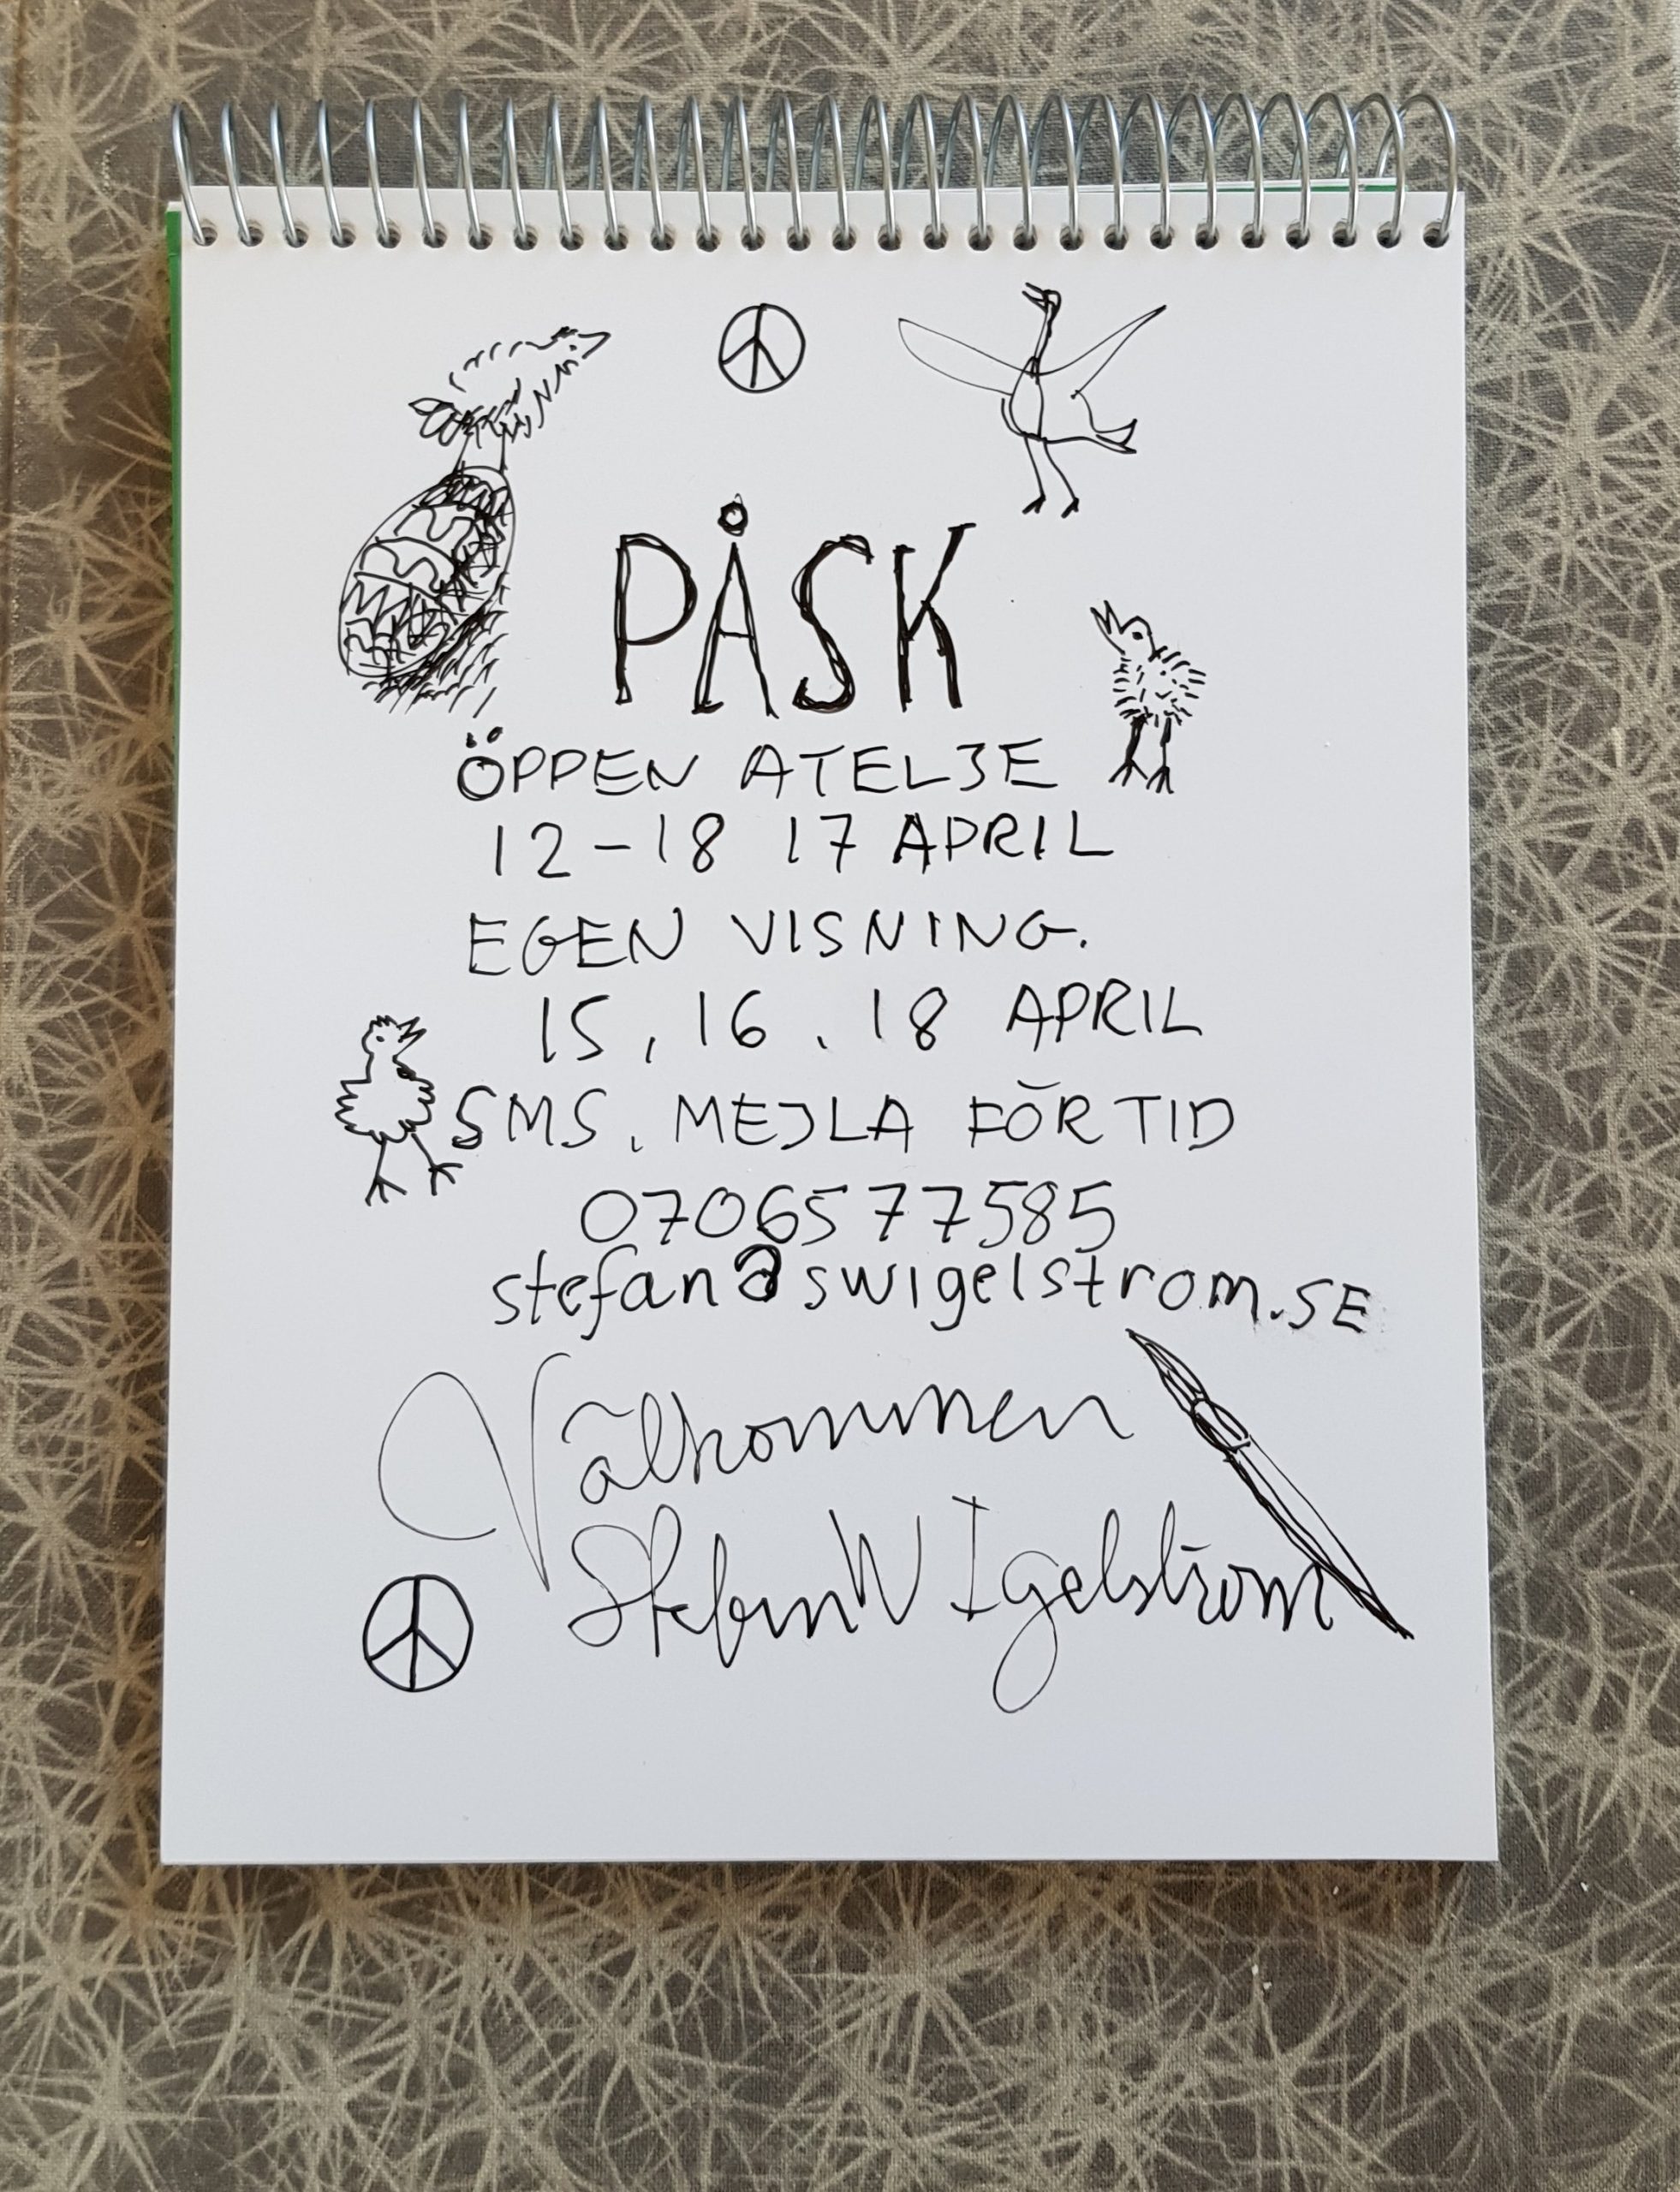 PÅSK
ÖPPEN ATELJE
12-18 17 APRIL
EGEN VISNING.
15, 16, 18 APRIL
SMS, MEJLA FÖR TID
0706577585
stefan@swigelstrom.SE
Välkommen
Stefan W Igelström